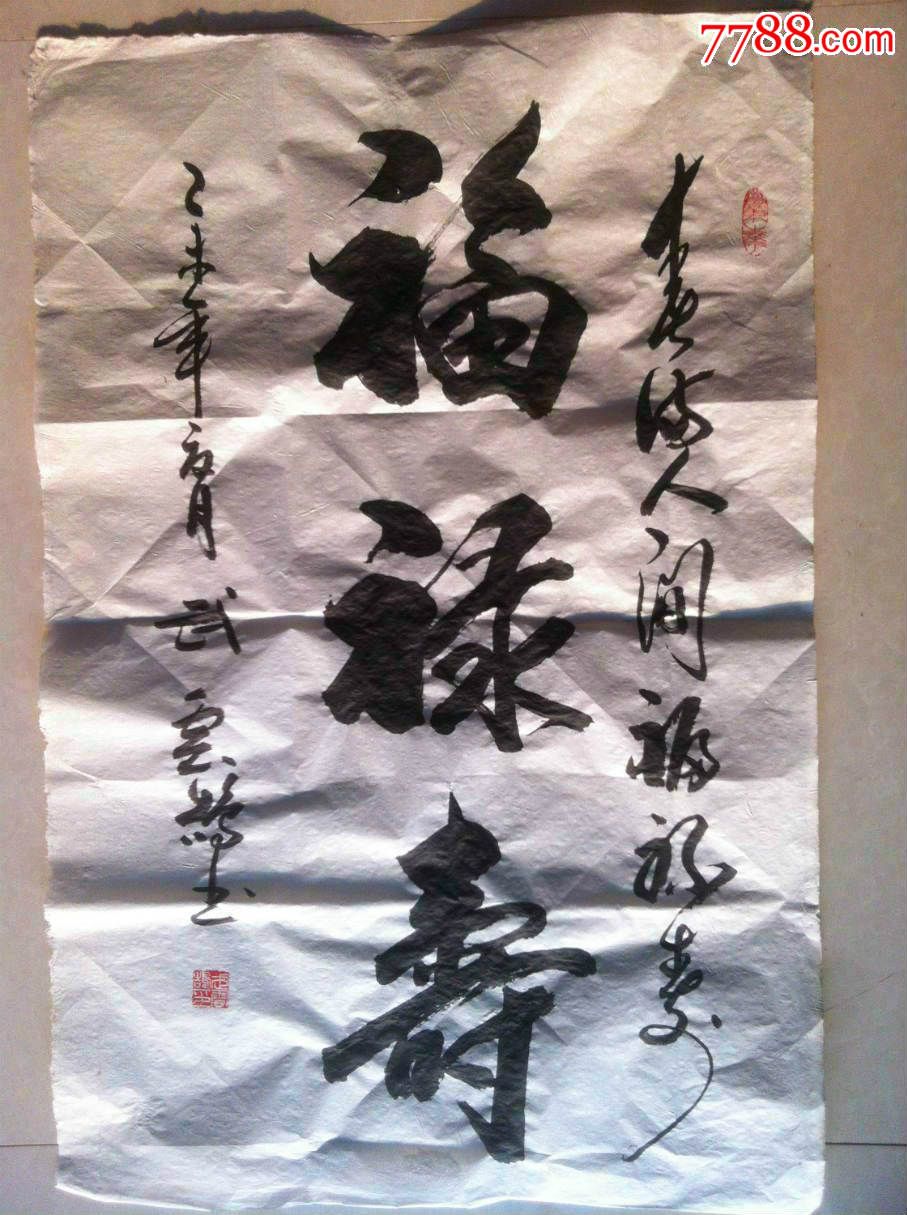 7788.com
春满人间福禄寿
福禄寿
乙未年 月 武云鹤书